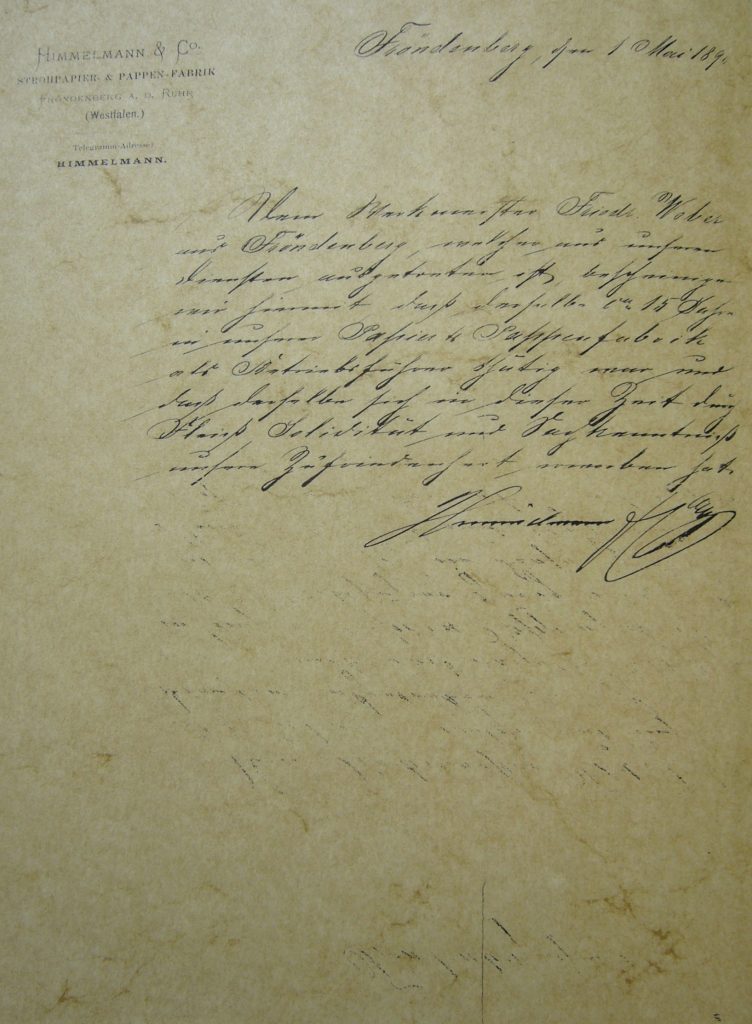 HIMMELMANN & CO.
STROHPAPIER- & PAPPEN-FABRIK
FRÖNDENBERG A. D. RUHR
(Westfalen.)
Telegramm-Adresse:
HIMMELMANN.
Fröndenberg, den 1 Mai 189
Dem Werkmeister Friedr. Weber
aus Fröndenberg, welcher aus unseren
Diensten ausgetreten ist, bescheinigen
wir hiermit, daß derselbe ca. 15 Jahre
in unserer Papier & Pappenfabrik
als Betriebsführer thätig war und
daß derselbe sich in dieser Zeit durch
Fleiß Solidität und Sachkenntniß
unsere Zufriedenheit erworben hat.
Himmelmann & Co